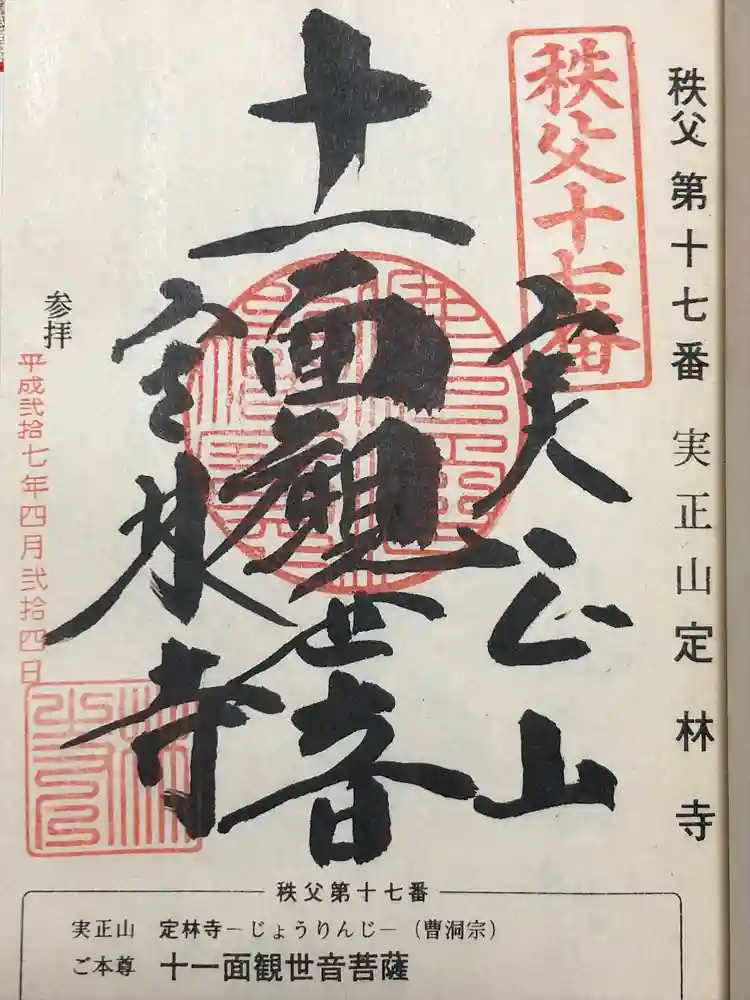 秩父第十七番 実正山定林寺
秩父十七番
実正山
十一面観世音
定林寺
参拝
平成弐拾七年四月弐拾四日
秩父第十七番
実正山 定林寺−じょうりんじ−（曹洞宗）
ご本尊 十一面観世音菩薩